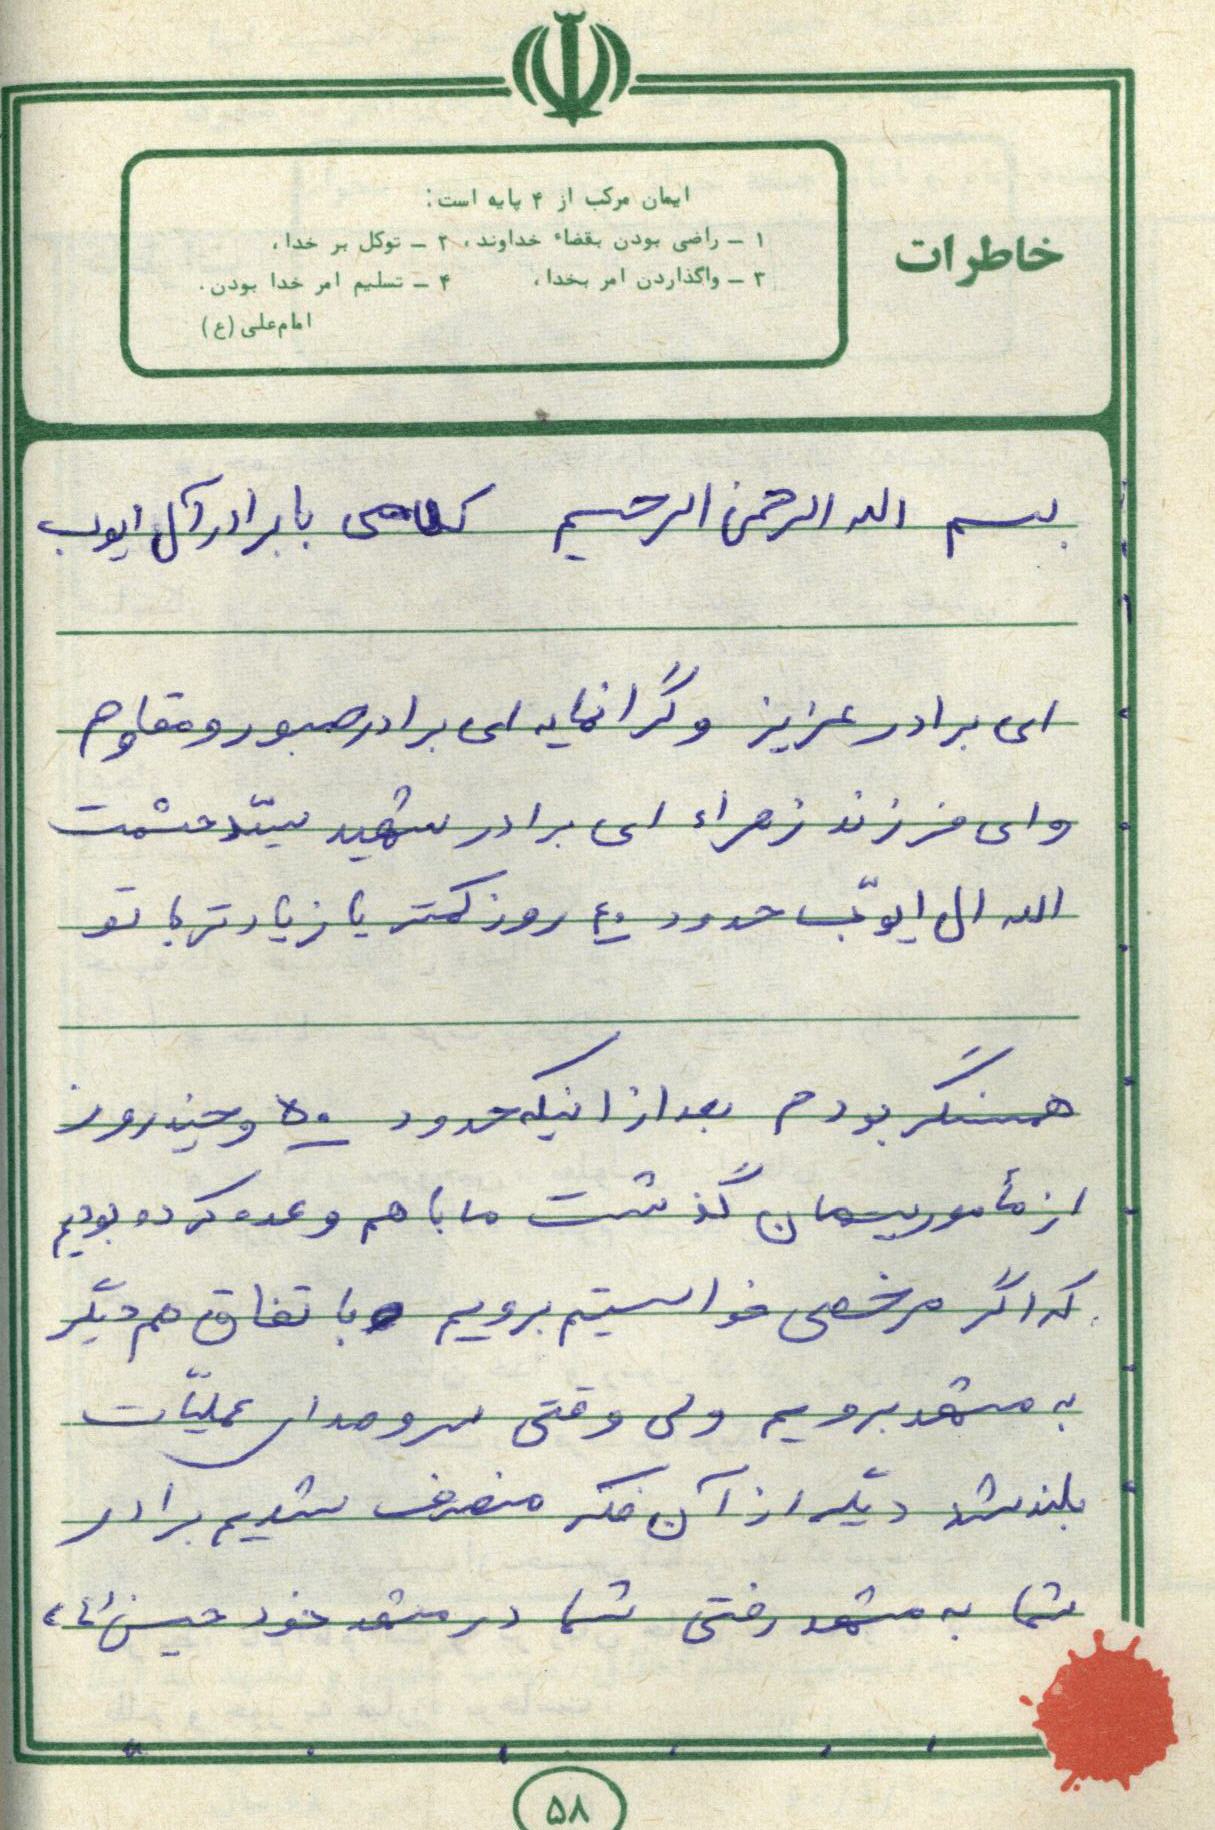 خاطرات
ایمان مرکب از ۴ پایه است:
۱ - راضی بودن بقضاء خداوند، ۲ - توکل بر خدا،
۳ - واگذاردن امر بخدا، ۴ - تسلیم امر خدا بودن.
امام‌علی (ع)
بسم الله الرحمن الرحیم کلامی با برادر آل ایوب
ای برادر عزیز و گرانمایه ای برادر صبور و مقاوم
و ای فرزند زهراء ای برادر شهید سیّد حشمت
الله ال ایوّب حدود ۴۰ روز کمتر یا زیادتر با تو
همسنگر بودم بعد از اینکه حدود ۵۰ و چند روز
از مأموریتمان گذشت ما با هم وعده کرده بودیم
که اگر مرخصی خواستیم برویم با تفاق هم دیگر
به مشهد برویم ولی وقتی سر و صدای عملیّات
بلند شد دیگر از آن فکر منصرف شدیم برادر
شما به مشهد رفتی شما در مشهد خود حسین (ع)
۵۸